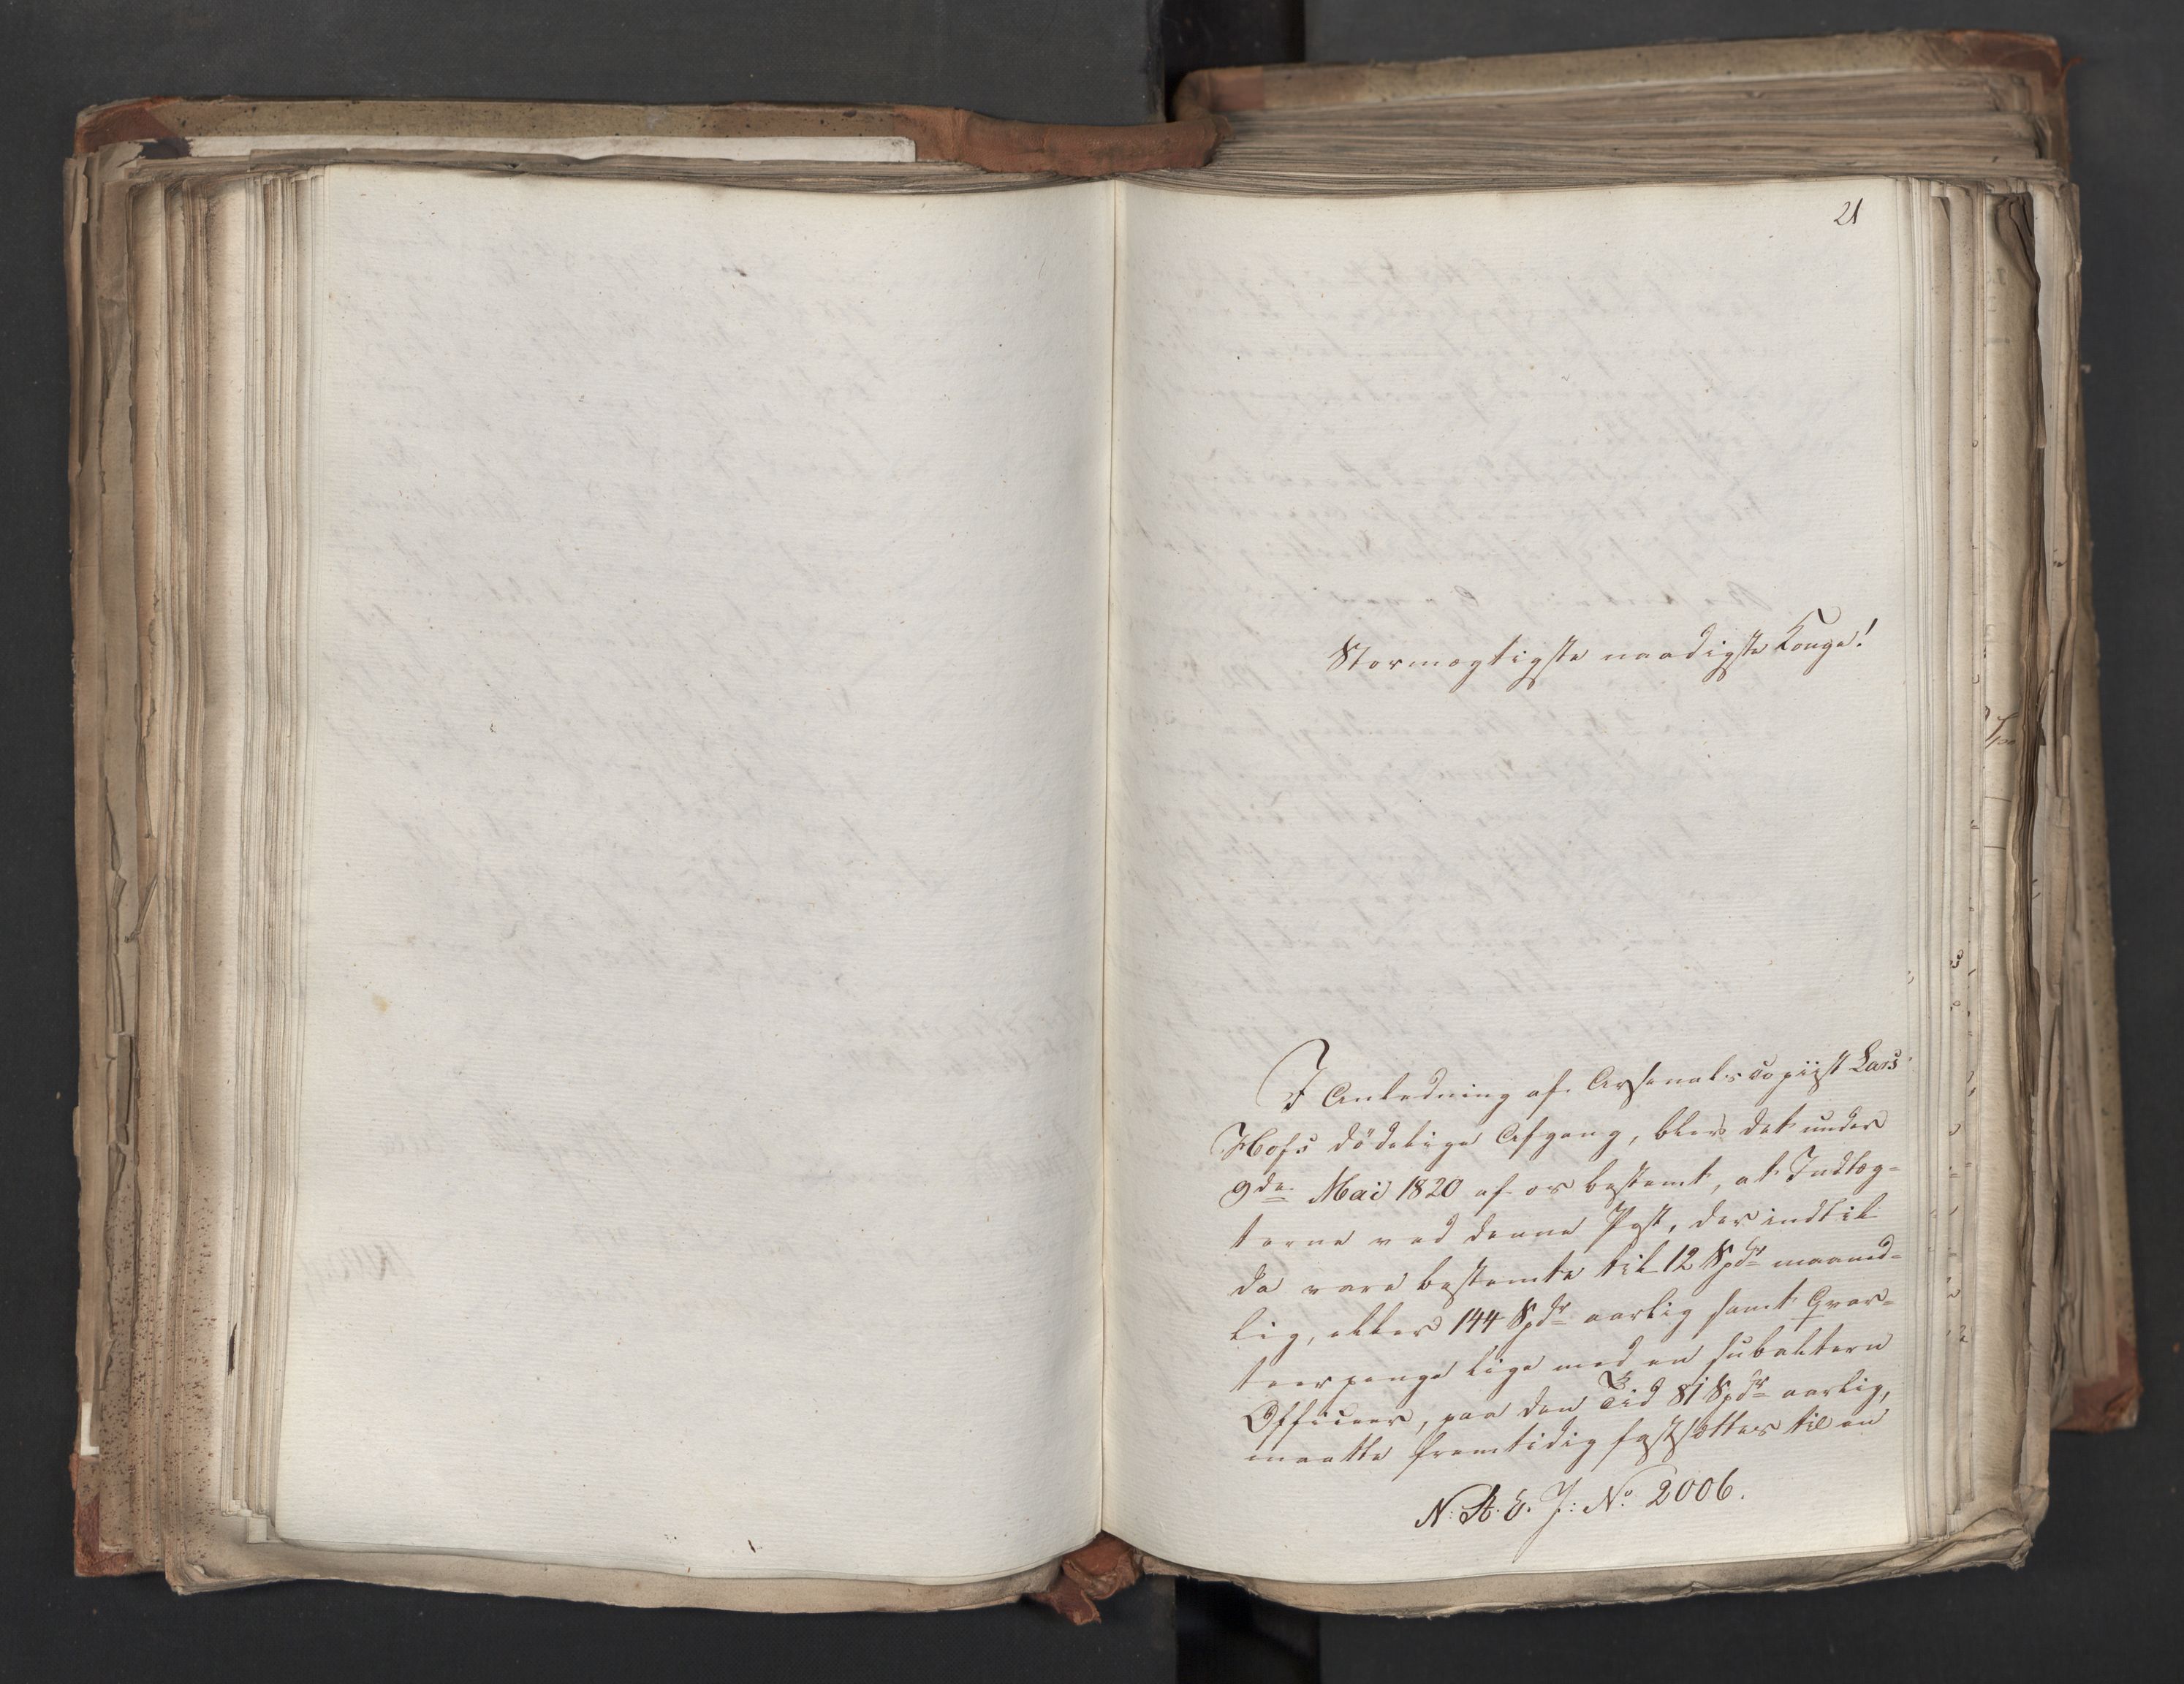 21
Stormægtigste naadigste Konge!
I Anledning af Arsenalscopiist Lars
Hofs dödelige Afgang, blev det under
9de Mai 1820 af os bestemt, at Indtæg-
terne ved denne Post, der indtil
da vare bestemte til 12 Spdr maaned-
lig, eller 144 Spdr aarlig samt Qvar-
teerpenge lige med en subaltern
Officeer, paa den Tid 81 Spdr aarlig,
maatte fremtidig fastsættes til en
N: A. E. J: No 2006.